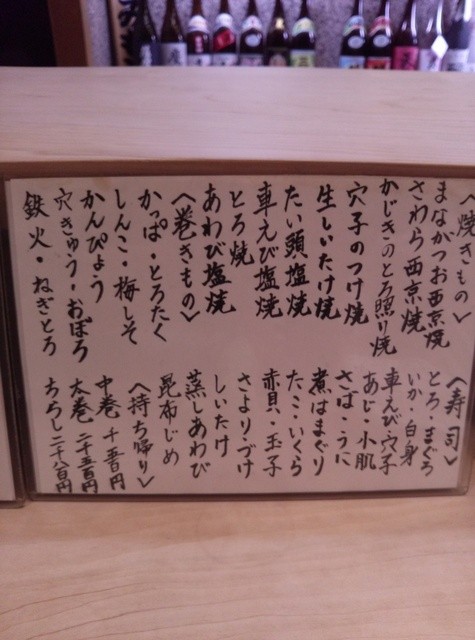 〈焼きもの〉
まながつお西京焼
さわら西京焼
かじきのとろ照り焼
穴子のつけ焼
生しいたけ焼
たい頭塩焼
車えび塩焼
とろ焼
あわび塩焼
〈巻きもの〉
かっぱ・とろたく
しんこ・梅しそ
かんぴょう
穴きゅう・おぼろ
鉄火・ねぎとろ
〈寿司〉
とろ・まぐろ
いか・白身
車えび・穴子
あじ・小肌
さば・うに
煮はまぐり
たこ・いくら
赤貝・玉子
さよりづけ
しいたけ
蒸しあわび
昆布じめ
〈持ち帰り〉
中巻 千五百円
太巻 二千五百円
ちらし 二千八百円